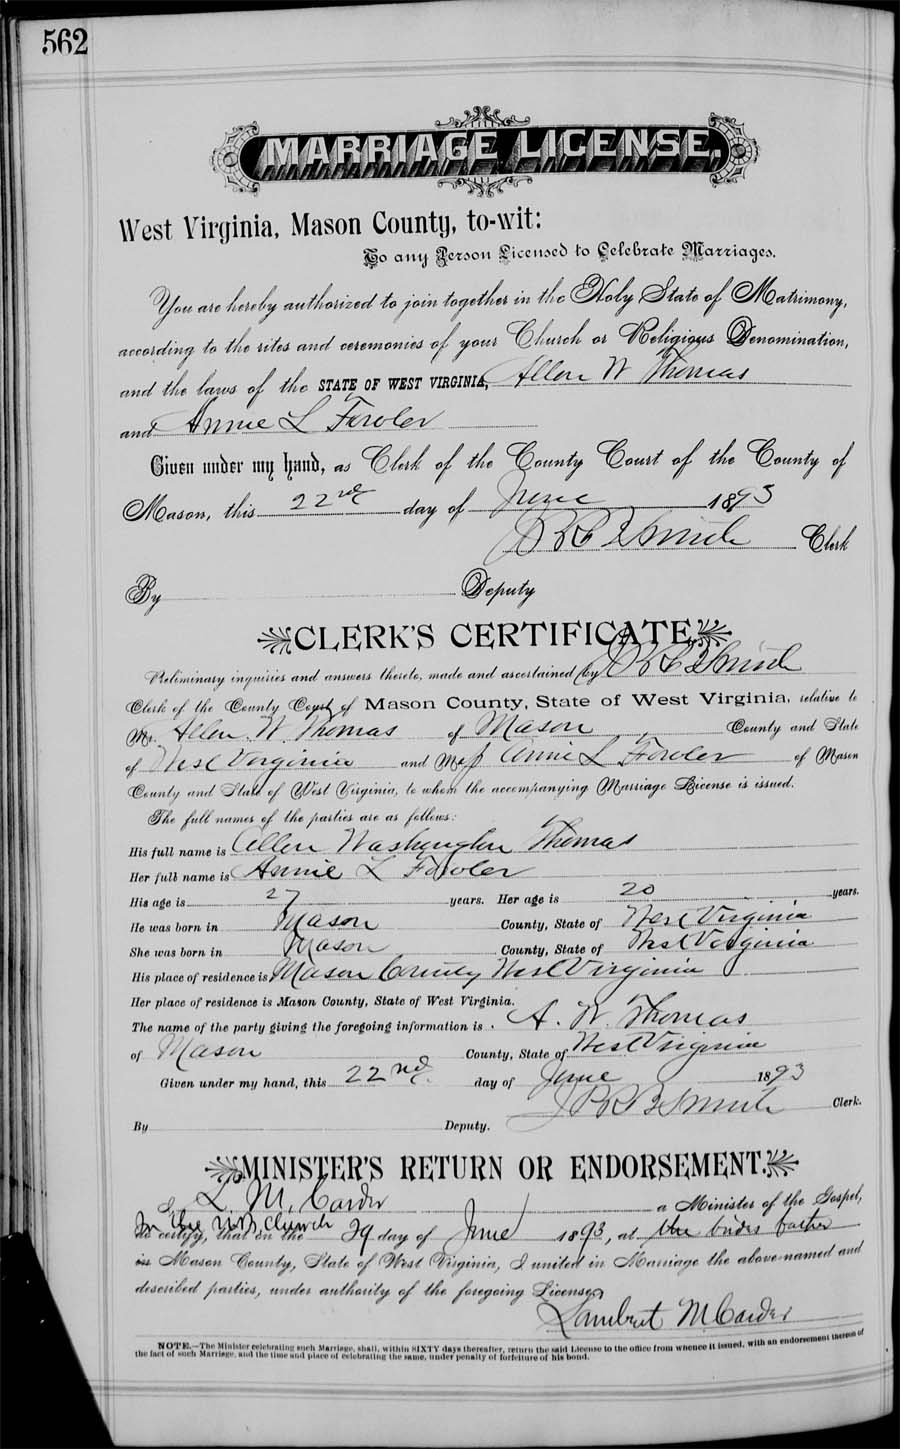 562
MARRIAGE LICENSE.
West Virginia, Mason County, to-wit:
To any Person Licensed to Celebrate Marriages.
You are hereby authorized to join together in the Holy State of Matrimony,
according to the rites and ceremonies of your Church or Religious Denomination,
and the laws of the STATE OF WEST VIRGINIA, Allen W Thomas
and Annie L Fowler
Given under my hand, as Clerk of the County Court of the County of
Mason, this 22nd day of June 1893
Smith Clerk
By Deputy
CLERK'S CERTIFICATE.
Preliminary inquiries and answers thereto, made and ascertained by Smith
Clerk of the County Court of Mason County, State of West Virginia, relative to
Mr. Allen. W. Thomas of Mason County and State
of West Virginia and M Annie L Fowler of Mason
County and State of West Virginia, to whom the accompanying Marriage License is issued.
The full names of the parties are as follows:
His full name is Allen Washington Thomas
Her full name is Annie L Fowler
His age is 27 years. Her age is 20 years.
He was born in Mason County, State of West Virginia
She was born in Mason County, State of West Virginia
His place of residence is Mason County West Virginia
Her place of residence is Mason County, State of West Virginia.
The name of the party giving the foregoing information is A. W. Thomas
of Mason County, State of West Virginia
Given under my hand, this 22nd. day of June 1893
Smith Clerk.
By Deputy.
MINISTER'S RETURN OR ENDORSEMENT.
I, L. M. Carder a Minister of the Gospel,
In the church
do certify, that on the 29 day of June 1893, at the brides father
in Mason County, State of West Virginia, I united in Marriage the above-named and
described parties, under authority of the foregoing License.
Lambert M Carder
NOTE.—The Minister celebrating such Marriage, shall, within SIXTY days thereafter, return the said License to the office from whence it issued, with an endorsement thereon of
the fact of such Marriage, and the time and place of celebrating the same, under penalty of forfeiture of his bond.